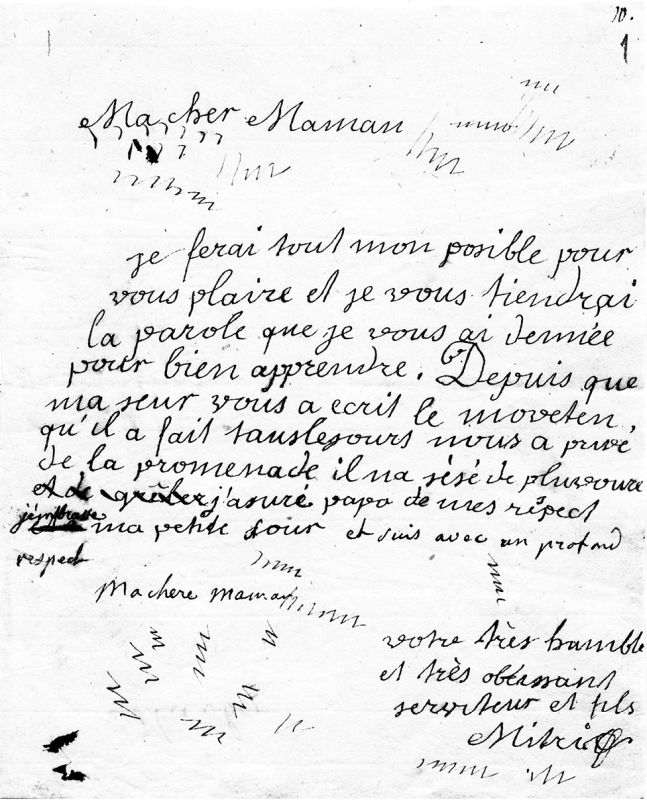 10.
1
Ma cher Maman
je ferai tout mon posible pour
vous plaire et je vous tiendrai
la parole que je vous ai dennée
pour bien apprendre. Depuis que
ma seur vous a ecrit le moveten,
qu'il a fait tauslesours nous a privé
de la promenade il na sésé de pluvoure
et de grêler j'asuré papa de mes réspect
j'embrasse ma petite sour et suis avec un profond
respect
Machere maman
votre très humble
et très obeissant
serviteur et fils
Mitri